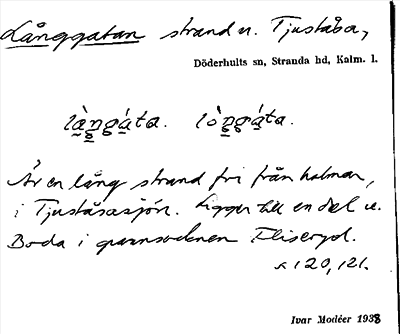 Långgatan strand u. Tjuståsa,
Döderhults sn, Stranda hd, Kalm. l.
là̱ṉgá̱ta. lò̱ṉgá̱ta.
Är en lång strand fri från holmar,
i Tjuståsasjön. Ligger till en del u.
Boda i grannsocknen Fliseryd.
120, 121.
Ivar Modéer 1938